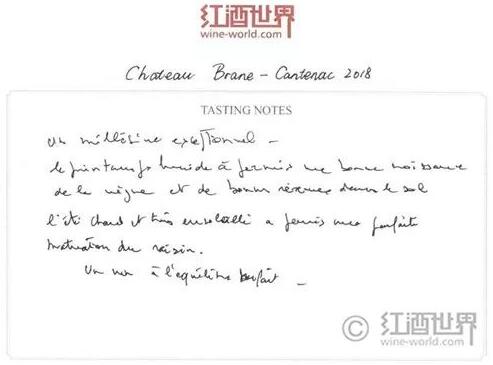 红酒世界
wine-world.com
Chateau Brane-Cantenac 2018
TASTING NOTES
Un millésime exceptionnel -
le printemps humide à permis une bonne croissance
de la vigne et de bonnes réserves dans le sol
l'été chaud et très ensoleillé a permis une parfaite
maturation du raisin.
Un vin à l'équilibre parfait -
© 红酒世界
wine-world.com